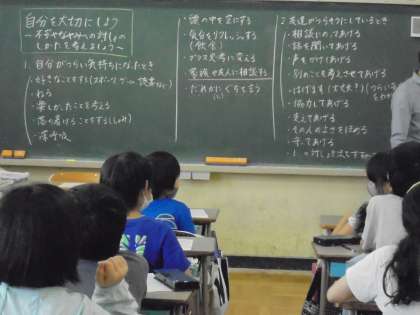 自分を大切にしよう
～不安やなやみへの対しょの
しかたを考えよう～
1. 自分がつらい気持ちになったとき
・好きなことをする(スポーツ、ゲーム、読書など)
・ねる
・楽しかったことを考える
・深呼吸
・頭の中を空にする
・気分をリフレッシュする
(飲食)
・プラス思考に変える
・家族や友人に相談する
・だれかにぐちを言う
2. 友達がつらそうにしているとき
・相談にのってあげる
・話を聞いてあげる
・声をかけてあげる
・別のことを考えさせてあげる
・はげます(大丈夫!)
・協力してあげる
・支えてあげる
・その人のよさをほめる
・守ってあげる